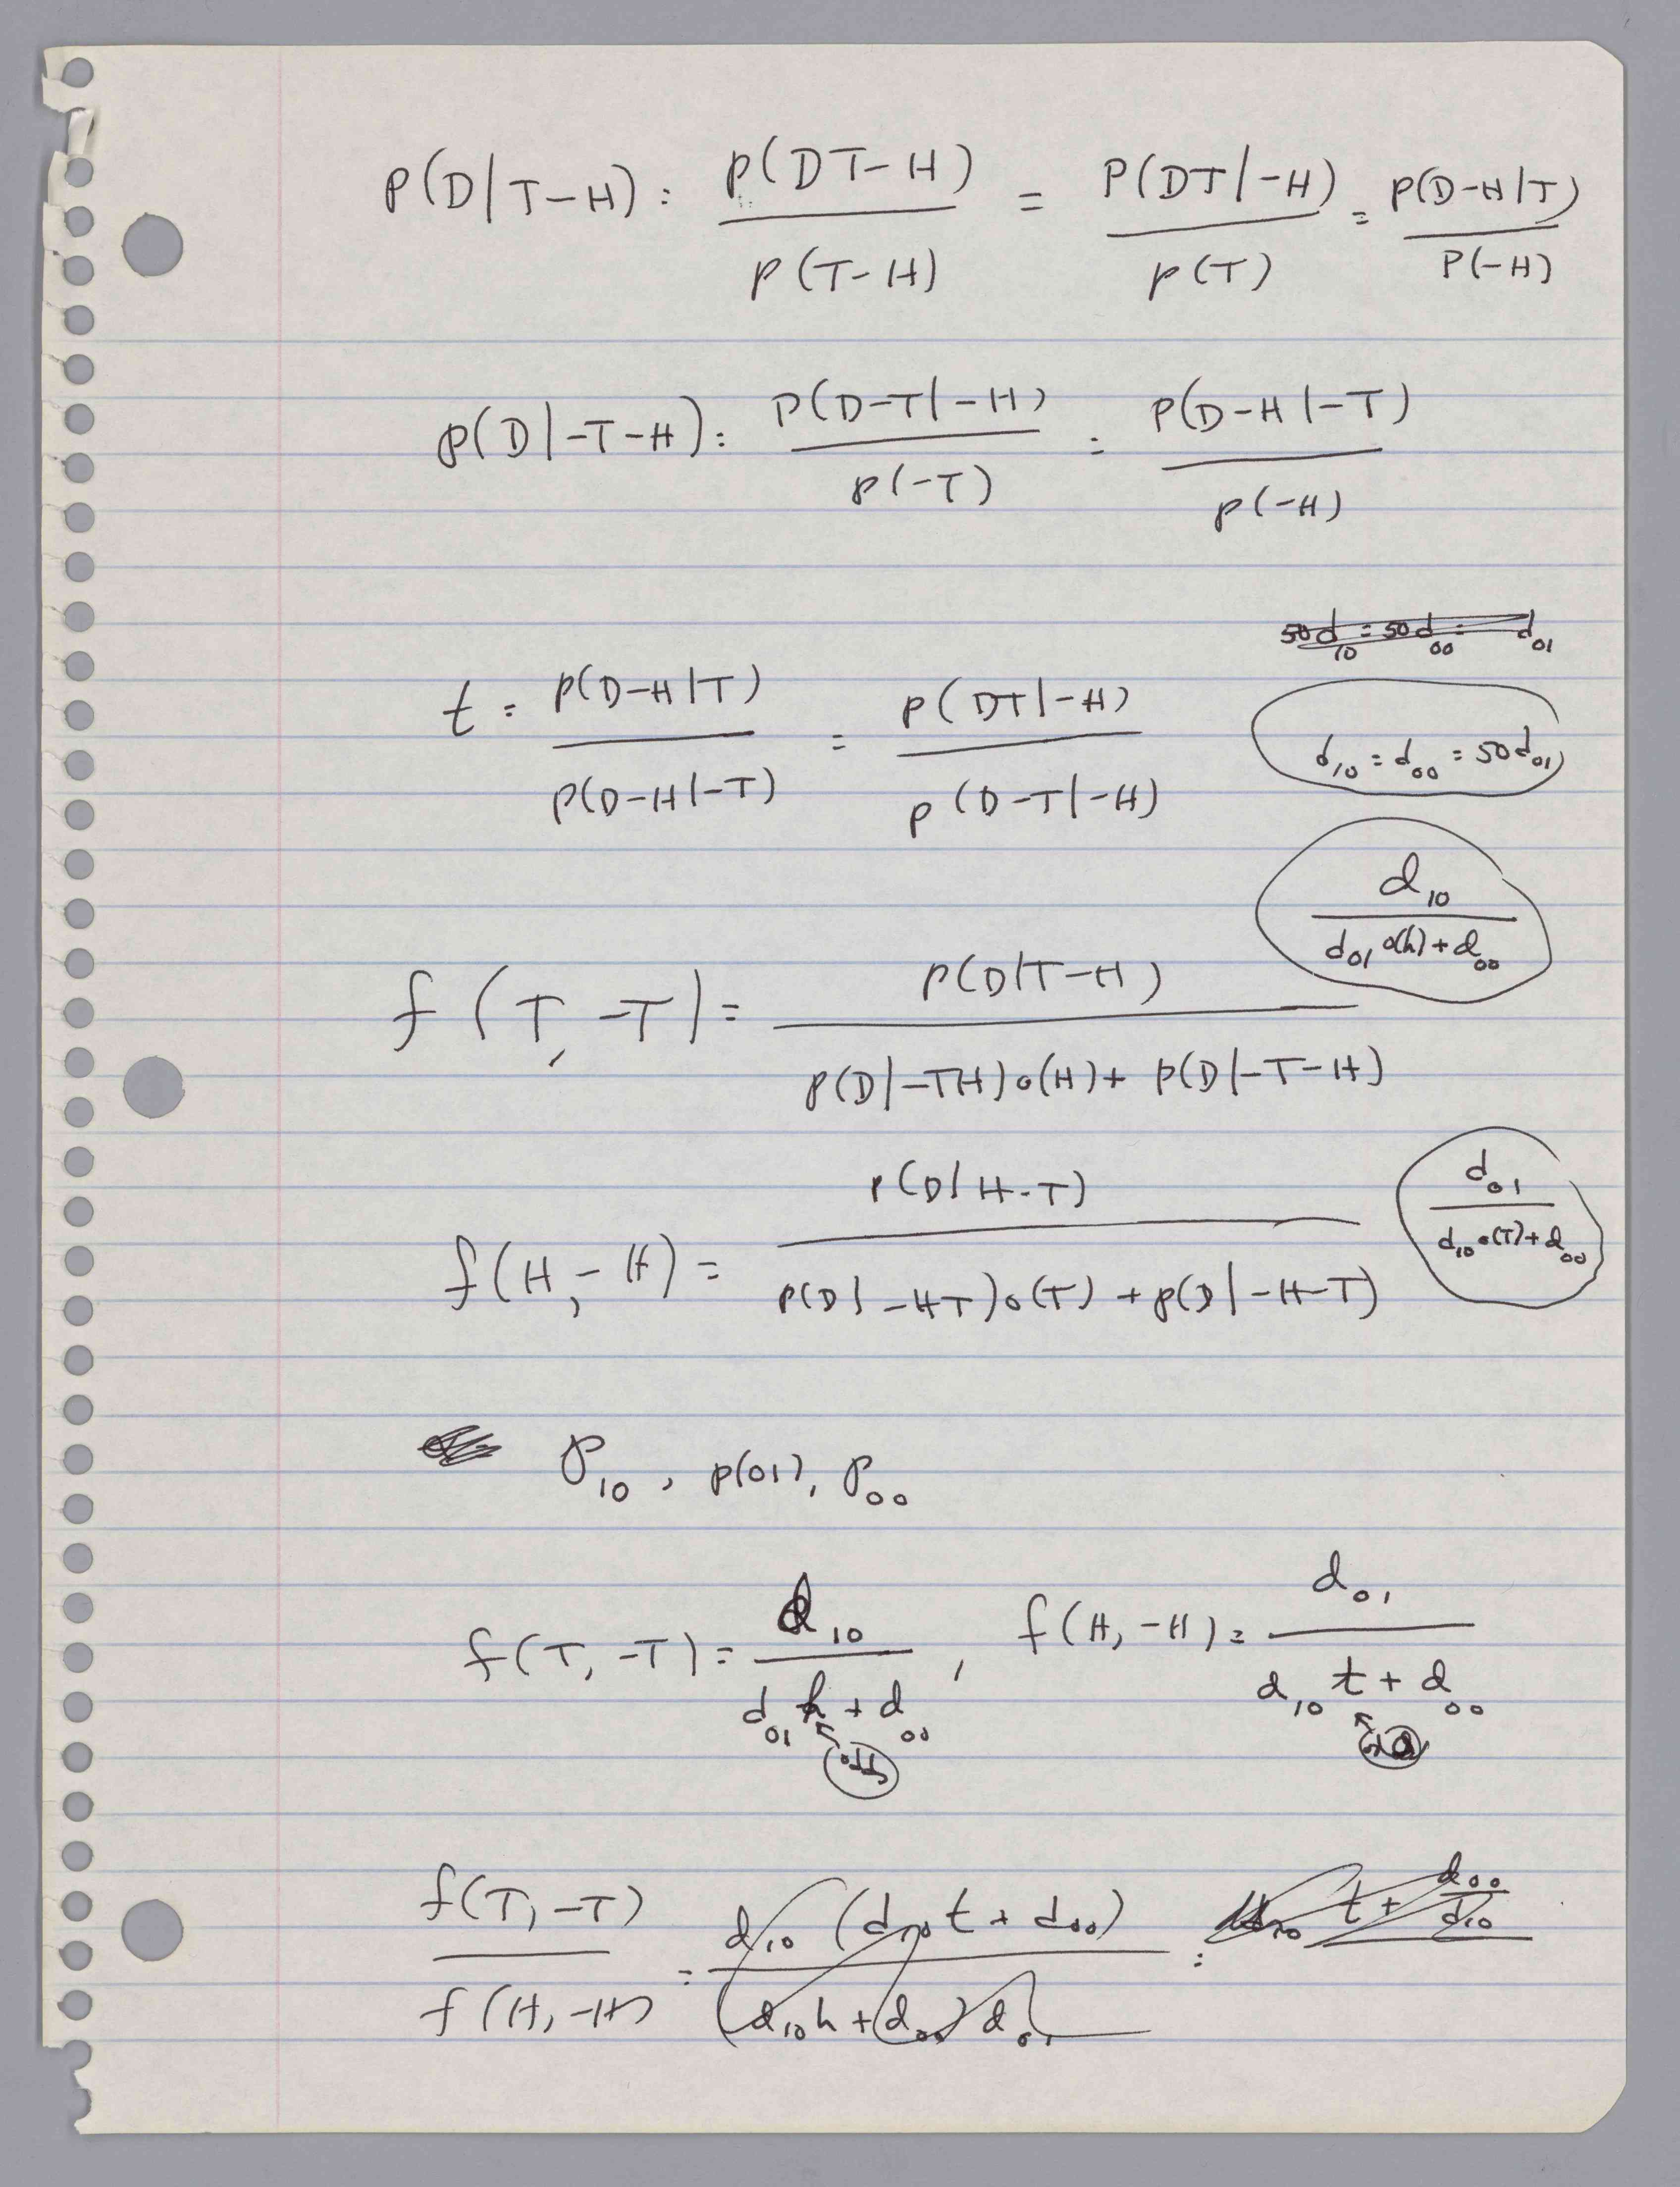 P(D|T-H) : p(DT-H) / p(T-H) = P(DT|-H) / p(T) = P(D-H|T) / P(-H)
p(D|-T-H) : P(D-T|-H) / p(-T) = P(D-H|-T) / p(-H)
50d10 = 50d00 = d01
t = p(D-H|T) / p(D-H|-T) = p(DT|-H) / p(D-T|-H)
d10 = d00 = 50d01
d10 / d01 o(h) + d00
f(T, -T) = p(D|T-H) / p(D|-TH) o(H) + p(D|-T-H)
d01 / d10 o(T) + d00
f(H, -H) = p(D|H-T) / p(D|-HT) o(T) + p(D|-H-T)
P10, p(01), P00
f(T, -T) = d10 / d01 h + d00 , f(H, -H) = d01 / d10 t + d00
odds
f(T, -T) / f(H, -H) = d10 (d10 t + d00) / (d10 h + d00) d01 = t + d00 / d10